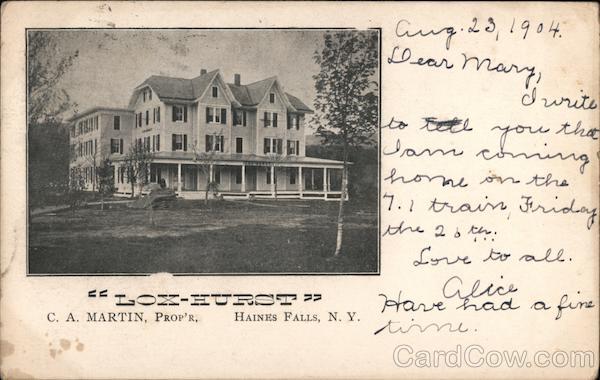 Aug. 23, 1904.
Dear Mary,
I write
to tell you that
I am coming
home on the
7.1 train, Friday
the 26th.
Love to all.
Alice
Have had a fine
time.
"LOX-HURST"
C. A. MARTIN, PROP'R, HAINES FALLS, N. Y.
CardCow.com